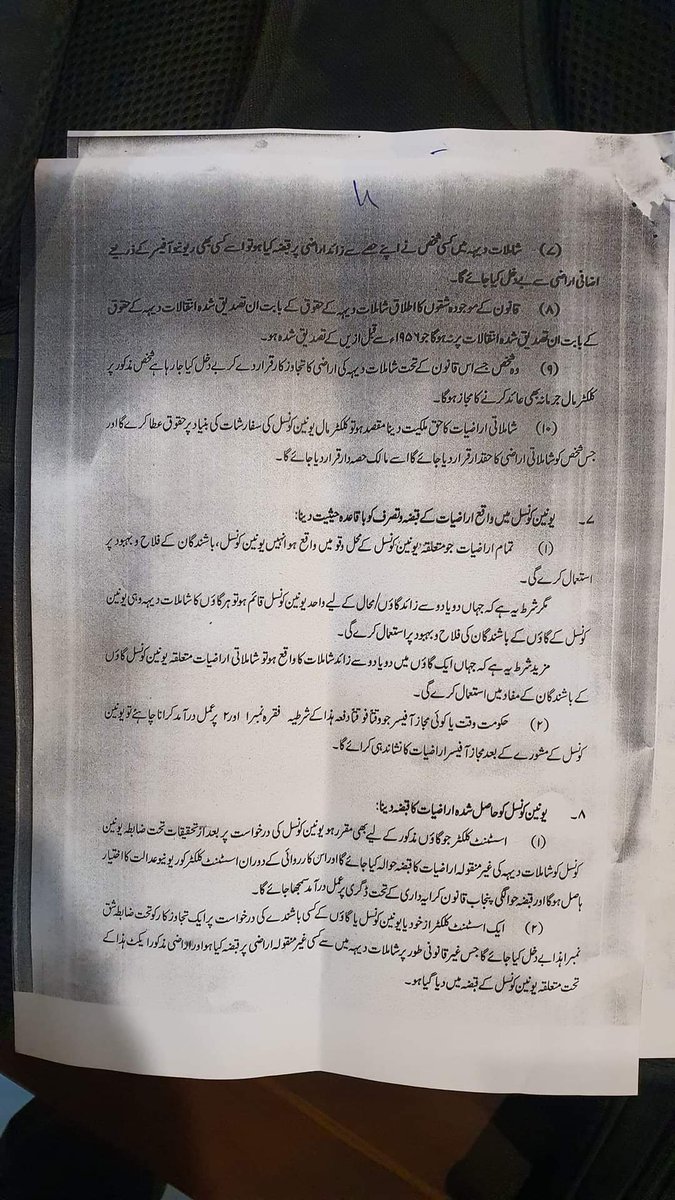 (۷) شاملات دیہہ میں کسی شخص نے اپنے حصے سے زائد اراضی پر قبضہ کیا ہو تو اسے کسی بھی ریونیو آفیسر کے ذریعے
اضافی اراضی سے بے دخل کیا جائے گا۔
(۸) قانون کے موجودہ شقوں کا اطلاق شاملات دیہہ کے حقوق کے بابت ان تصدیق شدہ انتقالات دیہہ کے حقوق
کے بابت ان تصدیق شدہ انتقالات پر نہ ہوگا جو ۱۹۵۶ء سے قبل ازیں کے تصدیق شدہ ہو۔
(۹) وہ شخص جسے اس قانون کے تحت شاملات دیہہ کی اراضی کا تجاوز کار قرار دے کر بے دخل کیا جا رہا ہے شخص مذکور پر
کلکٹر مال جرمانہ بھی عائد کرنے کا مجاز ہوگا۔
(۱۰) شاملاتی اراضیات کا حق ملکیت دینا مقصد ہو تو کلکٹر مال یونین کونسل کی سفارشات کی بنیاد پر حقوق عطا کرے گا اور
جس شخص کو شاملاتی اراضی کا حقدار قرار دیا جائے گا اسے مالک حصہ دار قرار دیا جائے گا۔
۷۔ یونین کونسل میں واقع اراضیات کے قبضہ و تصرف کو باقاعدہ حیثیت دینا:
(۱) تمام اراضیات جو متعلقہ یونین کونسل کے محل وقو میں واقع ہو انہیں یونین کونسل، باشندگان کے فلاح و بہبود پر
استعمال کرے گی۔
مگر شرط یہ ہے کہ جہاں دو یا دو سے زائد گاؤں/محال کے لیے واحد یونین کونسل قائم ہو تو ہر گاؤں کا شاملات دیہہ وہی یونین
کونسل کے گاؤں کے باشندگان کی فلاح و بہبود پر استعمال کرے گی۔
مزید شرط یہ ہے کہ جہاں ایک گاؤں میں دو یا دو سے زائد شاملات کا واقع ہو تو شاملاتی اراضیات متعلقہ یونین کونسل گاؤں
کے باشندگان کے مفاد میں استعمال کرے گی۔
(۲) حکومت وقت یا کوئی مجاز آفیسر جو وقتاً فوقتاً دفعہ ہذا کے شرطیہ فقرہ نمبر ۱ اور ۲ پر عمل درآمد کرانا چاہئے تو یونین
کونسل کے مشورے کے بعد مجاز آفیسر اراضیات کا نشاندہی کرائے گا۔
۸۔ یونین کونسل کو حاصل شدہ اراضیات کا قبضہ دینا:
(۱) اسسٹنٹ کلکٹر جو گاؤں مذکور کے لیے بھی مقرر ہو یونین کونسل کی درخواست پر بعد از تحقیقات تحت ضابطہ یونین
کونسل کو شاملات دیہہ کی غیر منقولہ اراضیات کا قبضہ حوالہ کیا جائے گا اور اس کارروائی کے دوران اسسٹنٹ کلکٹر کو ریونیو عدالت کا اختیار
حاصل ہوگا اور قبضہ حوالگی پنجاب قانون کرایہ داری کے تحت ڈگری پر عمل درآمد سمجھا جائے گا۔
(۲) ایک اسسٹنٹ کلکٹر از خود یا یونین کونسل یا گاؤں کے کسی باشندے کی درخواست پر ایک تجاوز کار کو تحت ضابطہ شق
نمبر ۱ ہذا بے دخل کیا جائے گا جس غیر قانونی طور پر شاملات دیہہ میں سے کسی غیر منقولہ اراضی پر قبضہ کیا ہو اور اراضی مذکور ایکٹ ہذا کے
تحت متعلقہ یونین کونسل کے قبضہ میں دیا گیا ہو۔